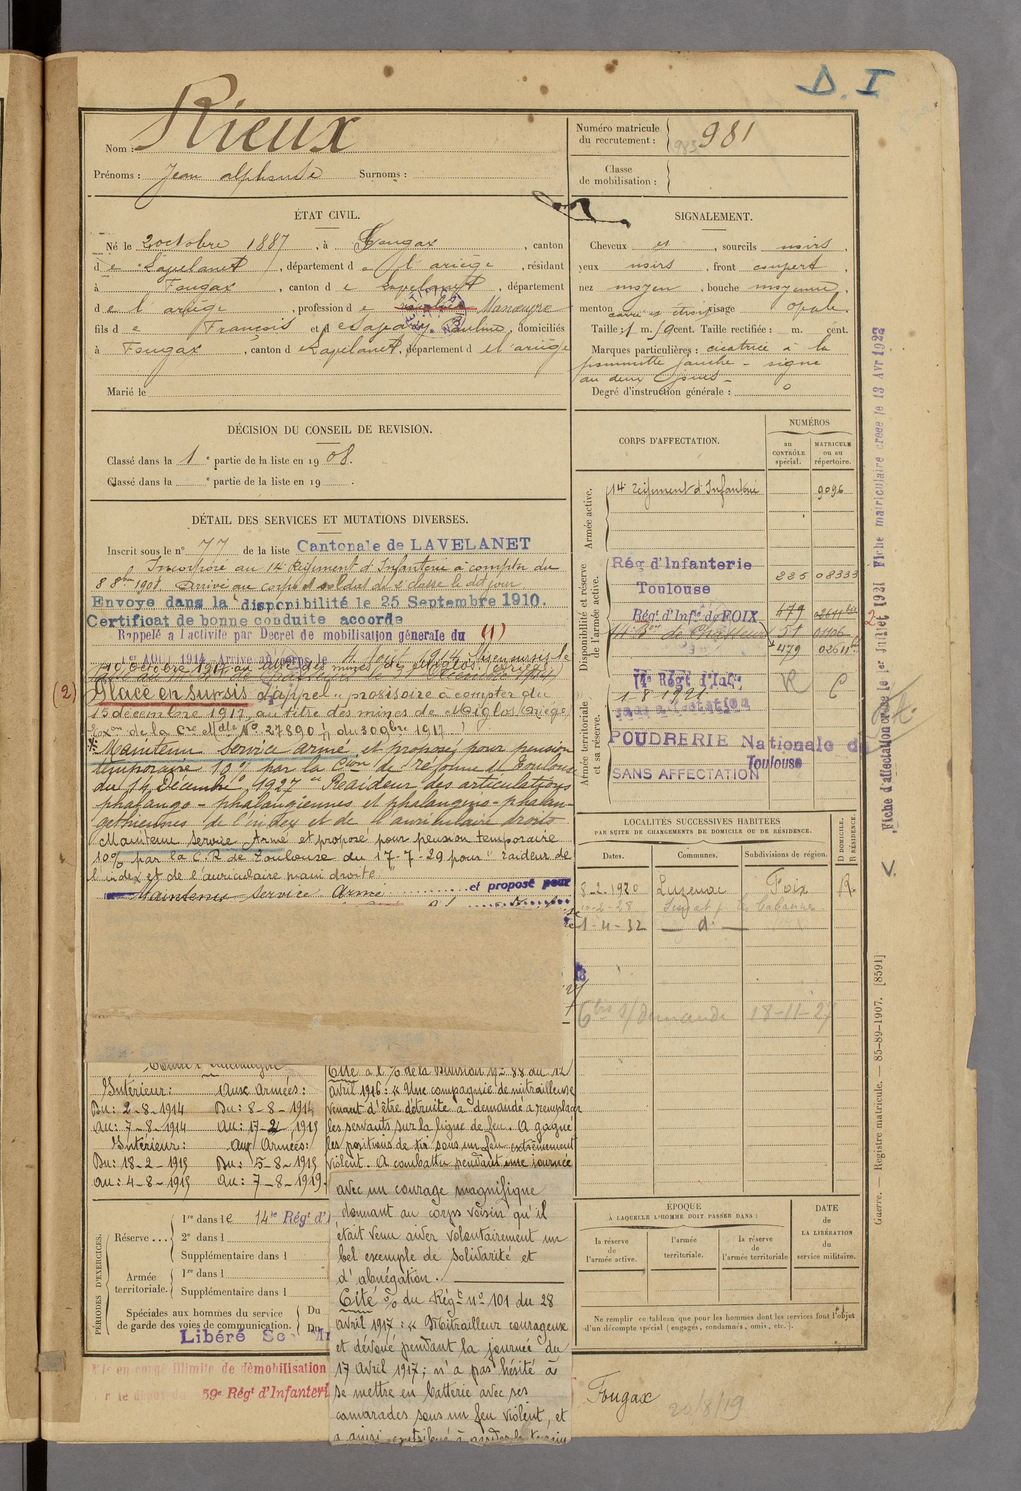 D. I
Nom : Rieux
Prénoms : Jean alphonse Surnoms :
Numéro matricule
du recrutement : 983 981
Classe
de mobilisation :
ÉTAT CIVIL.
Né le 2 octobre 1887, à Fougax, canton
de Lavelanet, département de l'ariège, résidant
à Fougax, canton de Lavelanet, département
de l'ariège, profession de Manœuvre
fils de François et d Pauline, domiciliés
à Fougax, canton de Lavelanet, département de l'ariège
Marié le
SIGNALEMENT.
Cheveux et, sourcils noirs,
yeux noirs, front couvert,
nez moyen, bouche moyenne,
menton visage ovale.
Taille : 1 m. cent. Taille rectifiée : m. cent.
Marques particulières : cicatrice à la
pommette gauche - signe
au deux
Degré d'instruction générale : 0
DÉCISION DU CONSEIL DE REVISION.
Classé dans la 1e partie de la liste en 1908.
Classé dans la e partie de la liste en 19 .
DÉTAIL DES SERVICES ET MUTATIONS DIVERSES.
Inscrit sous le n° 77 de la liste Cantonale de LAVELANET
Incorporé au 14e Régiment d'Infanterie à compter du
8 8bre 1908. Arrivé au corps et soldat de 2e classe le dit jour
Envoyé dans la disponibilité le 25 Septembre 1910.
Certificat de bonne conduite accordé
Rappelé à l'activité par Décret de mobilisation générale du (1)
1er AOUT 1914 Arrivé au corps le 4 Août 1914
(2) Placé en sursis d'appel provisoire à compter du
15 décembre 1917, au titre des mines de Miglos (Ariège)
de la Cre Mlle No 27890 du 30 9bre 1917
Maintenu Service armé et proposé pour pension
temporaire 10% par la Cion de réforme de Toulouse
du 14 Décembre 1927 "Raideur des articulations
phalango-phalangiennes et phalangino-phalan-
gettiennes de l'index et de l'annulaire droits
Maintenu service Armé et proposé pour pension temporaire
10% par la C.R. de Toulouse du 17-7-29 pour "raideur de
l'index et de l'auriculaire main droite."
Maintenu service Armé et proposé pour
CORPS D'AFFECTATION.
NUMÉROS
au CONTRÔLE spécial.
MATRICULE ou au répertoire.
Armée active.
14e régiment d'Infanterie 9096
Disponibilité et réserve de l'armée active.
Rég d'Infanterie
Toulouse 235 08333
Régt d'Infie de FOIX 479
51
479 02611
Armée territoriale et sa réserve.
14e Régt d'Infie R C
1 8 1921
sans affectation
POUDRERIE Nationale de
Toulouse
SANS AFFECTATION
LOCALITÉS SUCCESSIVES HABITÉES
PAR SUITE DE CHANGEMENTS DE DOMICILE OU DE RÉSIDENCE.
Dates. Communes. Subdivisions de région. D DOMICILE. R RÉSIDENCE.
8-2-1920 Luzenac Foix R
1-4-32 - d° -
s/ demande 18-11-27
Intérieur : Aux Armées :
Du : 2-8-1914 Du : 8-8-1914
Au : 7-8-1914 Au : 17-2-1915
Intérieur : Aux Armées :
Du : 18-2-1915 Du : 5-8-1915
Au : 4-8-1915 Au : 7-8-1919
Cité à l'% de la Division No 88 du 12
avril 1916 : « Une compagnie de mitrailleuse
venant d'être détruite a demandé a remplacer
les servants sur la ligne de feu. A gagné
les positions de tir sous un feu extrêmement
violent. A combattu pendant une journée
avec un courage magnifique
donnant au corps voisin qu'il
était venu aider volontairement un
bel exemple de solidarité et
d'abnégation.
Cité % du Régt No 101 du 28
avril 1917 : « Mitrailleur courageux
et dévoué pendant la journée du
17 avril 1917 ; n'a pas hésité à
se mettre en batterie avec ses
camarades sous un feu violent, et
a ainsi contribué à
PÉRIODES D'EXERCICES.
Réserve ... 1re dans le 14e Régt d'I
2e dans l
Supplémentaire dans l
Armée territoriale. 1re dans l
Supplémentaire dans l
Spéciales aux hommes du service
de garde des voies de communication. Du
Du
Libéré
en congé illimité de démobilisation
59e Régt d'Infanteri
ÉPOQUE
À LAQUELLE L'HOMME DOIT PASSER DANS :
la réserve de l'armée active. l'armée territoriale. la réserve de l'armée territoriale
DATE
de
LA LIBÉRATION
du
service militaire.
Ne remplir ce tableau que pour les hommes dont les services font l'objet
d'un décompte spécial (engagés, condamnés, omis, etc.).
Fougax
20/8/19
Fiche d'affectation créée le 1er Juillet 1921 Fiche matriculaire créée le 13 Avr 1922
Guerre. — Registre matricule. — 85-89-1907. [8591]